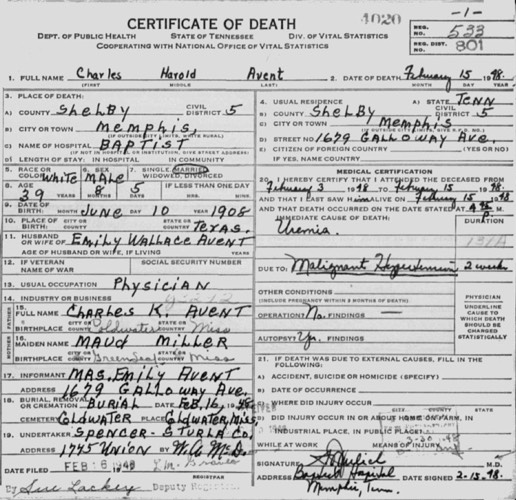 4020
-1-
CERTIFICATE OF DEATH
REG. NO. 533
DEPT. OF PUBLIC HEALTH STATE OF TENNESSEE DIV. OF VITAL STATISTICS
REG. DIST. 801
COOPERATING WITH NATIONAL OFFICE OF VITAL STATISTICS
1. FULL NAME Charles Harold Avent
(FIRST) MIDDLE (LAST)
2. DATE OF DEATH February 15 1948
MONTH DAY YEAR
3. PLACE OF DEATH:
A) COUNTY Shelby CIVIL DISTRICT 5
B) CITY OR TOWN Memphis,
(IF OUTSIDE CITY LIMITS, WRITE RURAL)
C) NAME OF HOSPITAL BAPTIST
(IF NOT IN HOSPITAL OR INSTITUTION, GIVE STREET ADDRESS)
D) LENGTH OF STAY: IN HOSPITAL IN COMMUNITY
4. USUAL RESIDENCE A) STATE TENN
B) COUNTY Shelby CIVIL DISTRICT 5
C) CITY OR TOWN Memphis
D) STREET NO. 1679 Galloway Ave.
E) CITIZEN OF FOREIGN COUNTRY (YES OR NO)
IF YES, NAME COUNTRY
5. RACE OR COLOR White
6. SEX Male
7. SINGLE, MARRIED, WIDOWED, DIVORCED
8. AGE 39 8 5 IF LESS THAN ONE DAY
HRS. MIN.
9. DATE OF BIRTH June 10 1908
MONTH DAY YEAR
10. PLACE OF BIRTH Texas.
CITY COUNTY STATE OR COUNTRY
11. HUSBAND OR WIFE OF Emily Wallace Avent
AGE OF HUSBAND OR WIFE, IF ALIVE YEARS
12. IF VETERAN NAME OF WAR SOCIAL SECURITY NUMBER
13. USUAL OCCUPATION Physician
14. INDUSTRY OR BUSINESS
FATHER
15. FULL NAME Charles K. Avent
BIRTHPLACE Coldwater Miss
CITY COUNTY STATE OR COUNTRY
MOTHER
16. MAIDEN NAME Maud Miller
BIRTHPLACE Miss
17. INFORMANT Mrs. Emily Avent
ADDRESS 1679 Galloway Ave.
18. BURIAL, REMOVAL OR CREMATION Burial DATE Feb. 16, 1948
CEMETERY Coldwater PLACE Coldwater, Miss
19. UNDERTAKER Spencer-Sturla Co,
ADDRESS 1795 Union BY
DATE FILED FEB 1948
Sue Lackey Deputy
MEDICAL CERTIFICATION
20. I HEREBY CERTIFY THAT I ATTENDED THE DECEASED FROM
February 3 1948 TO February 15 1948.
AND THAT I LAST SAW HIM ALIVE ON February 15 1948.
AND THAT DEATH OCCURRED ON THE DATE STATED AT M.
IMMEDIATE CAUSE OF DEATH DURATION
Uremia.
131A
DUE TO: Malignant Hypertension 2 weeks
OTHER CONDITIONS
(INCLUDE PREGNANCY WITHIN 3 MONTHS OF DEATH)
OPERATION? No. FINDINGS —
AUTOPSY? FINDINGS
PHYSICIAN
UNDERLINE CAUSE TO WHICH DEATH SHOULD BE CHARGED STATISTICALLY
21. IF DEATH WAS DUE TO EXTERNAL CAUSES, FILL IN THE FOLLOWING:
A) ACCIDENT, SUICIDE OR HOMICIDE (SPECIFY)
B) DATE OF OCCURRENCE
C) WHERE DID INJURY OCCUR
D) DID INJURY OCCUR IN OR ABOUT HOME, ON FARM, IN INDUSTRIAL PLACE, IN PUBLIC PLACE
WHILE AT WORK MEANS OF INJURY
SIGNATURE
ADDRESS Baptist Hospital
Memphis, Tenn DATE 2-15-48